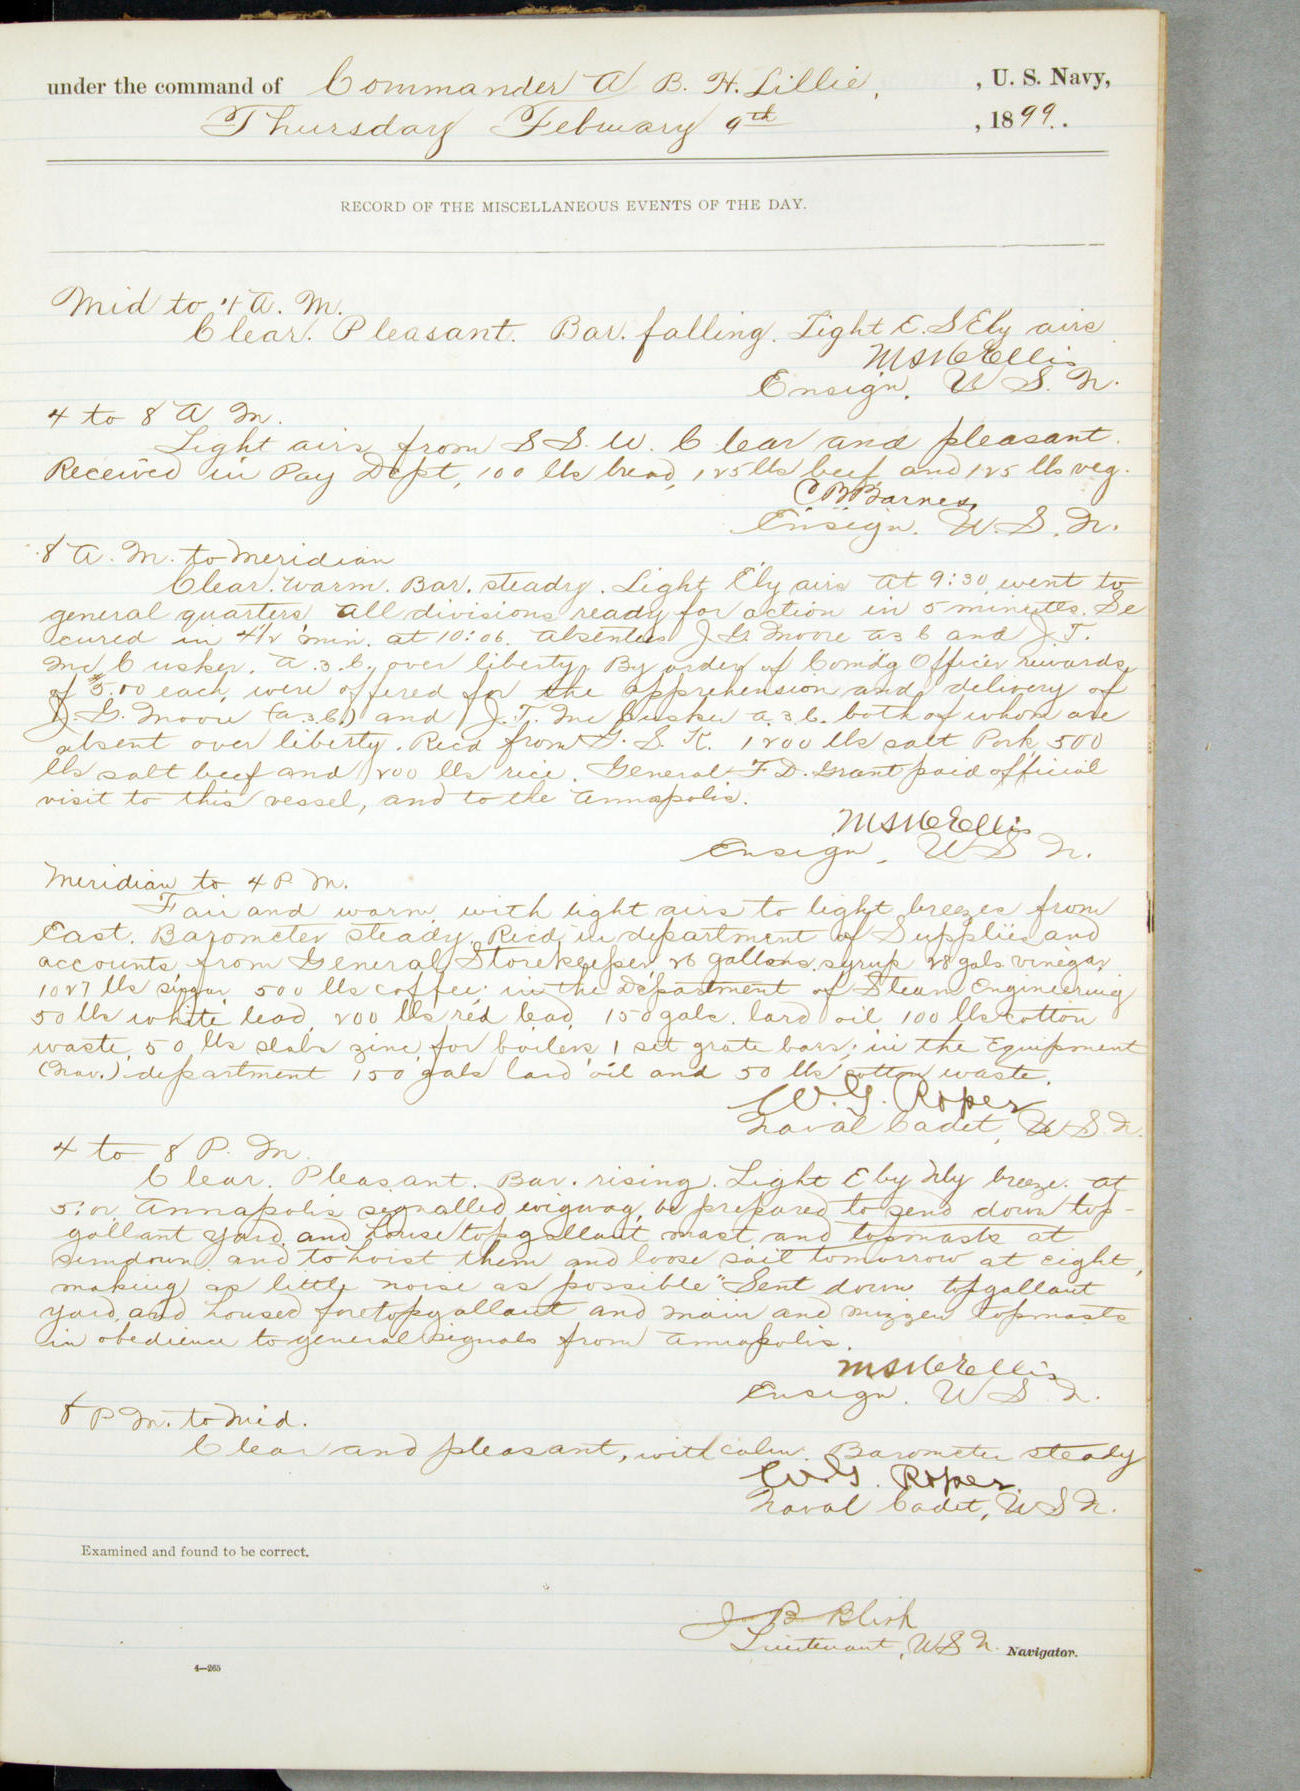 under the command of Commander A B. H. Lillie, , U. S. Navy,
Thursday February 9th , 1899.
RECORD OF THE MISCELLANEOUS EVENTS OF THE DAY.
Mid to 4 A. M.
Clear. Pleasant. Bar. falling. Light E. SEly airs
Ellis
Ensign, U S. N.
4 to 8 A M.
Light airs from S S. W. Clear and pleasant.
Received in Pay Dept, 100 lbs bread, 125 lbs beef and 125 lbs veg.
C B Barnes,
Ensign. U. S. N.
8 A. M. to Meridian
Clear. Warm. Bar. steady. Light Ely airs At 9:30 went to
general quarters, all divisions ready for action in 5 minutes. Se
cured in 4½ min. at 10:06. Absentees J G Moore a3c and J. T.
McCusker. a.3.c. over liberty. By order of Com'd'g Officer rewards
of $5.00 each were offered for the apprehension and delivery of
J. G. Moore (a.3.c.) and J. T. McCusker a.3.c. both of whom are
absent over liberty. Recd from G. S. K. 1200 lbs salt Pork, 500
lbs salt beef and 200 lbs rice. General F D. Grant paid official
visit to this vessel, and to the Annapolis.
Ellis
Ensign, U S N.
Meridian to 4 P. M.
Fair and warm with light airs to light breezes from
East. Barometer steady. Recd, in department of Supplies and
accounts, from General Storekeeper, 26 gallons syrup 28 gals vinegar
1027 lbs sugar 500 lbs coffee; in the Department of Steam Engineering
50 lbs white lead, 200 lbs red lead, 150 gals. lard oil 100 lbs cotton
waste, 50 lbs slabs zinc for boilers, 1 set grate bars; in the Equipment
(Nav.) department 150 gals lard oil and 50 lbs cotton waste.
W. G. Roper
Naval Cadet, U. S. N.
4 to 8 P. M.
Clear. Pleasant. Bar. rising. Light E by Nly breeze. At
5:02 Annapolis signalled wigwag, be prepared to send down top-
gallant yard and house topgallant mast and topmasts at
sundown and to hoist them and loose sail tomorrow at eight,
making as little noise as possible" Sent down topgallant
yard, and housed foretopgallant and main and mizzen topmasts
in obedience to general signals from Annapolis.
Ellis
Ensign. U S N.
8 P M. to Mid.
Clear and pleasant, with calm. Barometer steady
W. G. Roper.
Naval Cadet, U S N.
Examined and found to be correct.
J B Blish
Lieutenant, U S N. Navigator.
4—265